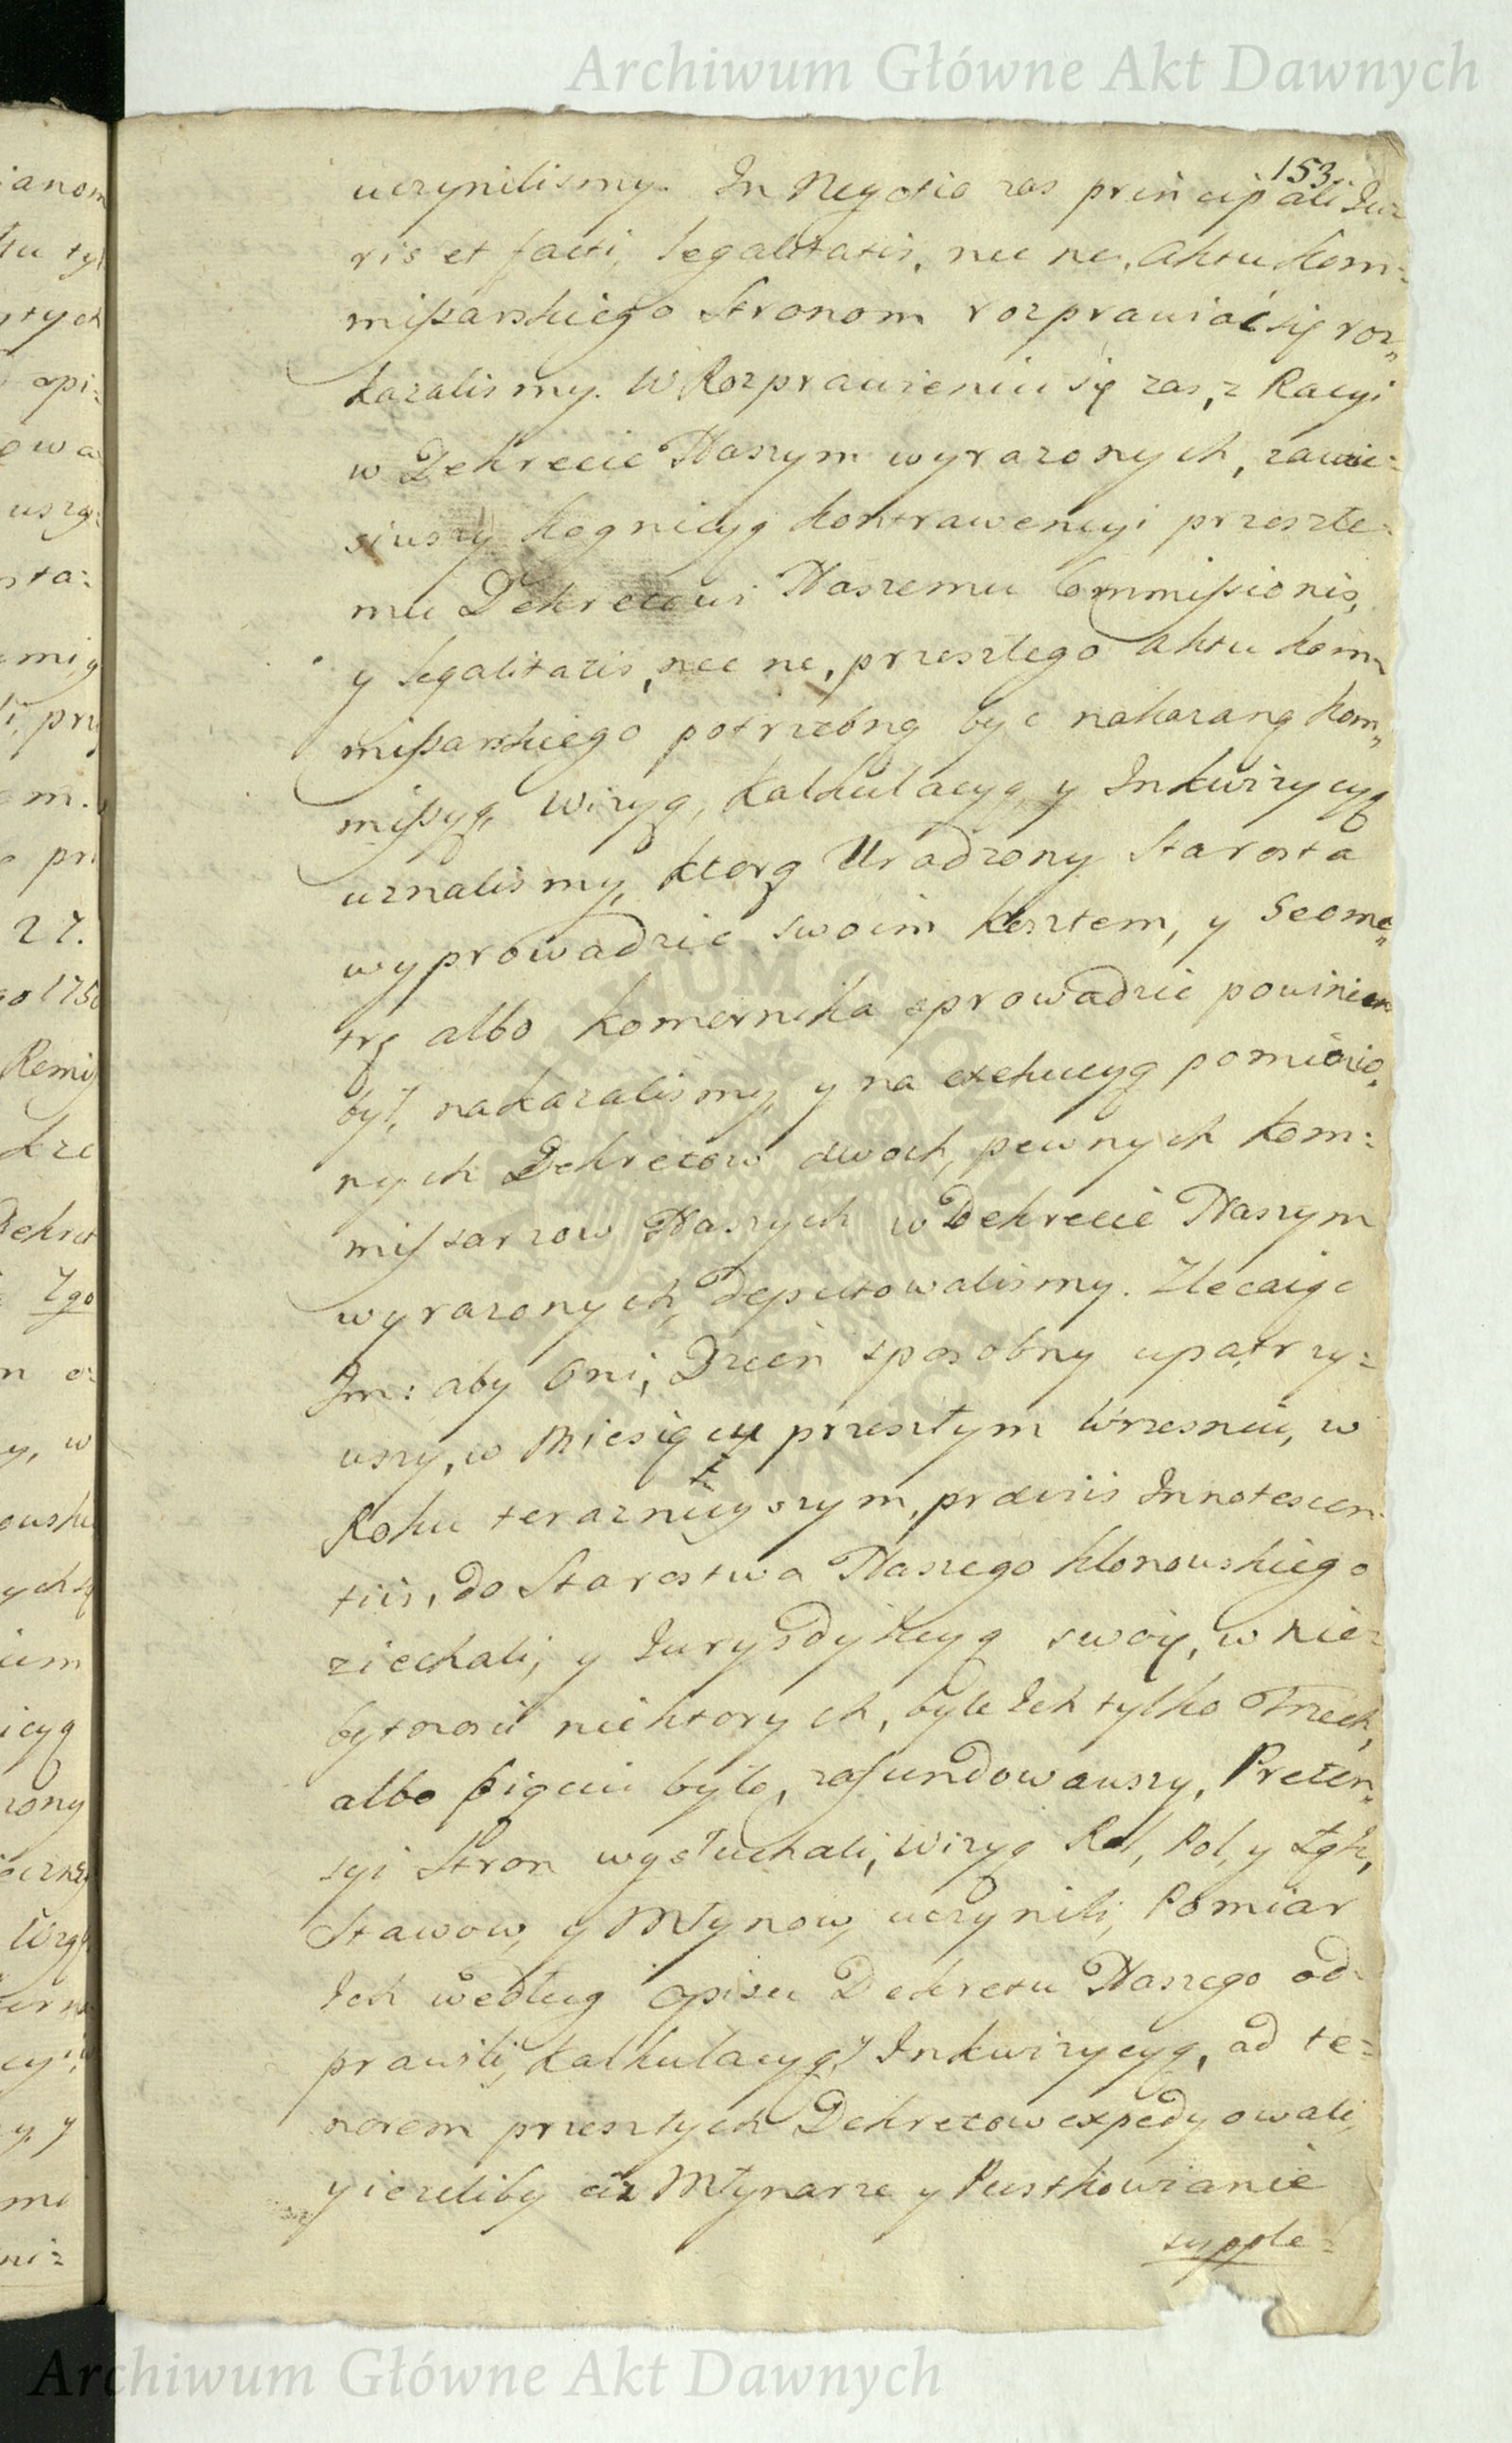 Archiwum Główne Akt Dawnych
153.
uczynilismy. In Negotio zas principali Ju
ris et facti, legalitatis, nec ne, Aktu Kom:
mißarskiego Stronom rozprawiać się roz„
kazalismy. W Rozprawieniu się zas, z Racyi
w Dekrecie Naszym wyrazonych, zawie:
siwszy kognicyą kontrawencyi przeszłe:
mu Dekretowi Naszemu Commißionis,
y legalitatis, nec ne, przeszłego Aktu Kom„
mißarskiego potrzebną byc nakazaną Kom„
mißyą, Wizyą, Kalkulacyą y Inkwizycyą
uznalismy, ktorą Urodzony Starosta
wyprowadzic swoim kosztem, y Geome„
trę albo Komornika sprowadzic powinien
był, nakazalismy, y na exekucyą pomienio„
nych Dekretow dwoch, pewnych Kom:
mißarzow Naszych w Dekrecie Naszym
wyrazonych, deputowalismy. Zlecaiąc
Im: aby Oni, Dzien sposobny upatrzy:
wszy, w Miesiącu przeszłym Wrzesniu, w
Roku teraznieyszym, praeviis Innotescen:
tiis, do Starostwa Naszego Klonowskiego
ziechali, y Jurysdykcyą swoię, w nie:
bytnosci niektorych, byle Ich tylko Trzech,
albo pięciu było, zafundowawszy, Preten„
syi Stron wysłuchali, Wizyą Rol, Pol, y Łąk,
Stawow, y Młynow, uczynili, Pomiar
Ich według Opisu Dekretu Naszego od:
prawili, Kalkulacyą, y Inkwizycyą, ad te:
norem przeszłych Dekretow expedyowali,
y iezeliby ciz Młynarze y Pustkowianie
supple:
ianom
27.
1750
Archiwum Główne Akt Dawnych